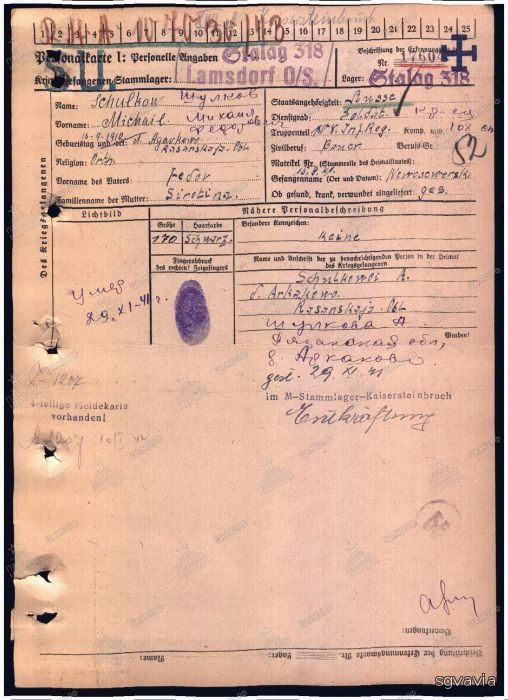 1 2 3 4 5 6 7 8 9 10 11 12 13 14 15 16 17 18 19 20 21 22 23 24 25
Personalkarte I: Personelle Angaben
Stalag 318
Beschriftung der Erkennungsmarke
Kriegsgefangenen-Stammlager:
Lamsdorf O/S.
Nr.
Lager: Stalag 318
Des Kriegsgefangenen
Name: Schulkow Шулков
Vorname: Michail Михаил
Geburtstag und -ort:
Rasanskaja Obl.
Religion: Orth.
Vorname des Vaters: Fedor
Familienname der Mutter: Sirotina
Staatsangehörigkeit: Russe
Dienstgrad: Soldat
Truppenteil: Inf. Reg. Komp. usw.:
Zivilberuf: Bauer Berufs-Gr.:
52
Matrikel Nr. (Stammrolle des Heimatstaates):
Gefangennahme (Ort und Datum):
Ob gesund, krank, verwundet eingeliefert: ges.
Lichtbild
Nähere Personalbeschreibung
Größe Haarfarbe Besondere Kennzeichen:
170 Schwarz. keine
Fingerabdruck
des rechten! Zeigefingers
Name und Anschrift der zu benachrichtigenden Person in der Heimat
des Kriegsgefangenen
Schulkowa A.
d. Arkakowo
Rasanskaja Obl.
Шулкова А.
Wenden!
Рязанская обл,
д. Аркаково
gest. 29 XI. 41
умер
29-XI-41 г.
im M-Stammlager-Kaisersteinbruch
Entkräftung
4-teilige Meldekarte
vorhanden!
Bemerkungen:
Beschriftung der Erkennungsmarke Nr. Lager: Name:
sgvavia